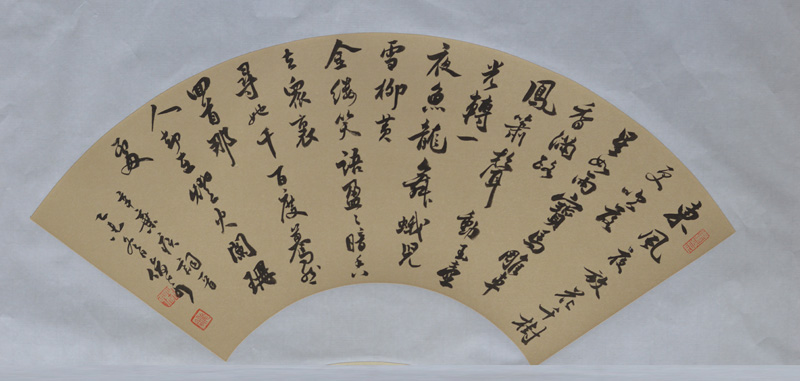 東風夜放花千樹
更吹落
星如雨寶馬雕車
香滿路
鳳簫聲動玉壺
光轉一
夜魚龍舞蛾兒
雪柳黄
金縷笑語盈々暗香
去眾裏
尋她千百度驀然
回首那
人卻在燈火闌珊
處
辛棄疾詞一首